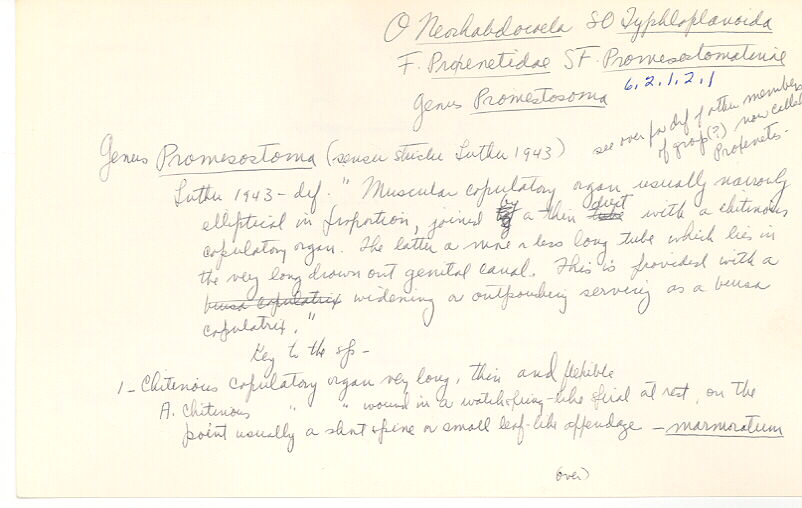 O Neorhabdocoela SO Typhloplanoida
F. Proxenetidae SF. Promesostomatinae
6.2.1.2.1
Genus Promestosoma
Genus Promesostoma (sensu stricto Luther 1943)
see over for def of other members
of group(?) now called
Proxenetes.
Luther 1943 - def. " Muscular copulatory organ usually narrowly
elliptical in proportion, joined by a thin duct with a chitinous
copulatory organ. The latter a more or less long tube which lies in
the very long drawn out genital canal. This is provided with a
bursa copulatrix widening or outpouching serving as a bursa
copulatrix."
Key to the sp -
1- Chitinous copulatory organ very long, thin and flexible
A. Chitinous " " wound in a watchspring-like spiral at rest, on the
point usually a short spine or small leaf-like appendage - marmoratum
(over)